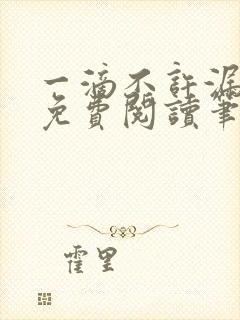 一滴不許漏
免費閱讀筆
霍里